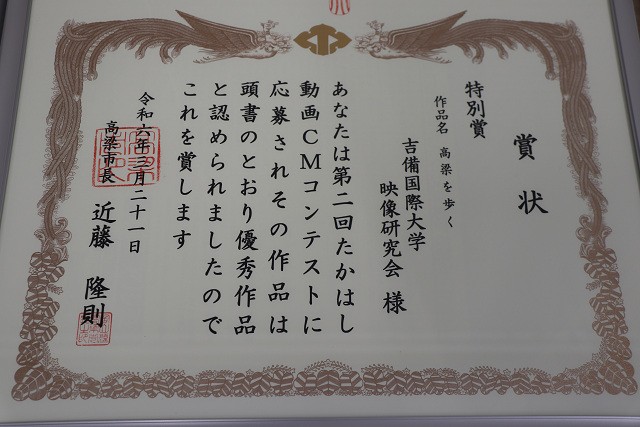 賞状
特別賞
作品名 高梁を歩く
吉備国際大学
映像研究会 様
あなたは第二回たかはし
動画CMコンテストに
応募されその作品は
頭書のとおり優秀作品
と認められましたので
これを賞します
令和六年三月二十一日
高梁市長 近藤 隆則